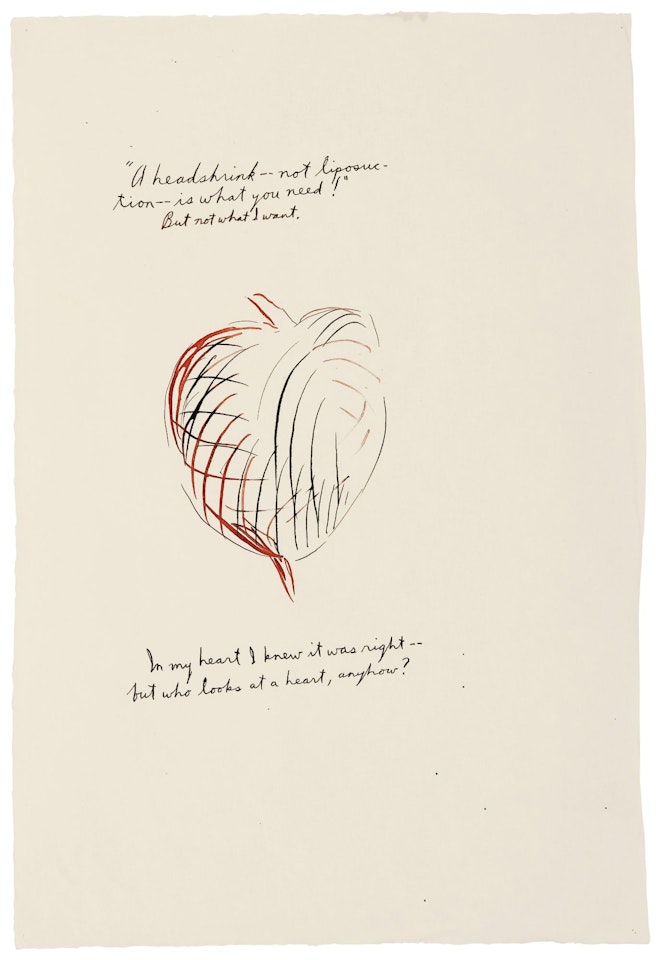 "A headshrink--not liposuc-
tion--is what you need!"
But not what I want.
In my heart I knew it was right--
but who looks at a heart, anyhow?